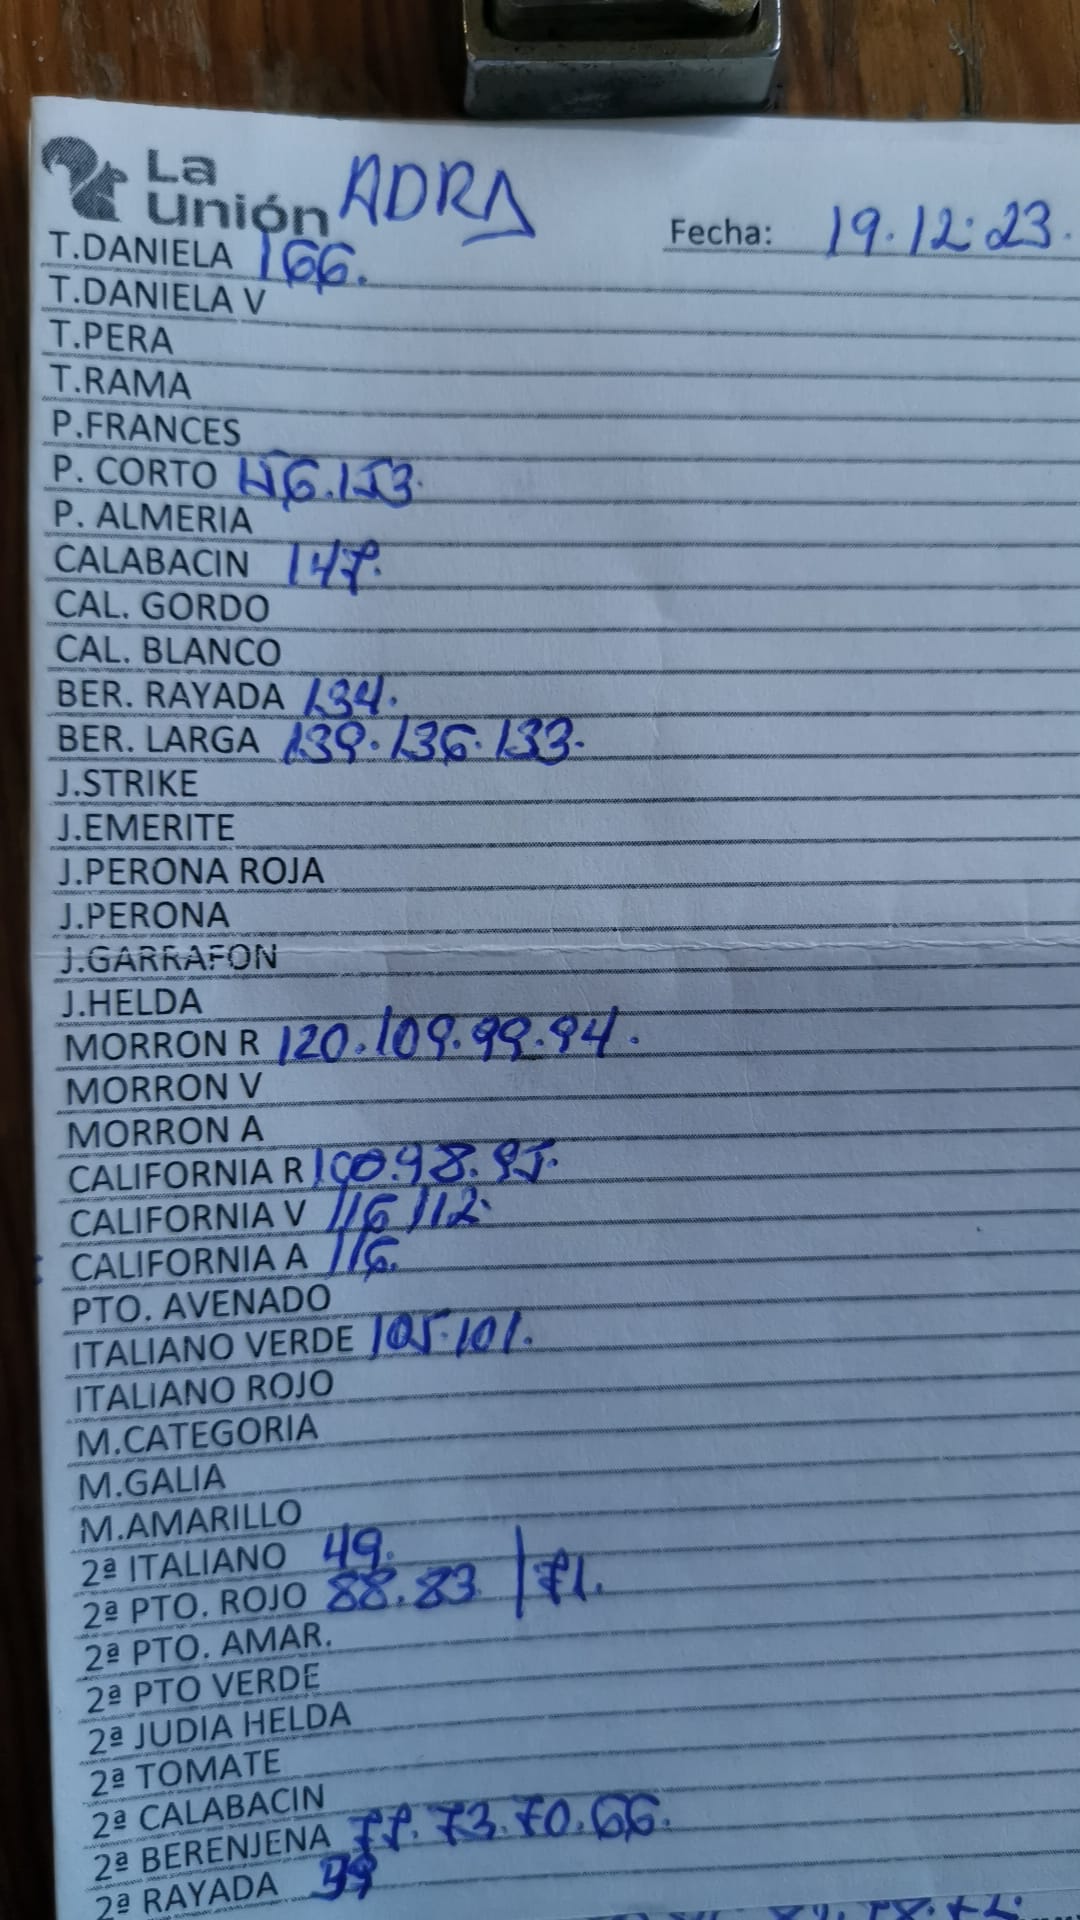 La
Unión ADRA
Fecha: 19.12.23.
T.DANIELA 166.
T.DANIELA V
T.PERA
T.RAMA
P.FRANCES
P. CORTO 156.153.
P. ALMERIA
CALABACIN 147.
CAL. GORDO
CAL. BLANCO
BER. RAYADA 134.
BER. LARGA 139.136.133.
J.STRIKE
J.EMERITE
J.PERONA ROJA
J.PERONA
J.GARRAFON
J.HELDA
MORRON R 120.109.99.94.
MORRON V
MORRON A
CALIFORNIA R 100.98.95.
CALIFORNIA V 116 112.
CALIFORNIA A 116.
PTO. AVENADO
ITALIANO VERDE 105.101.
ITALIANO ROJO
M.CATEGORIA
M.GALIA
M.AMARILLO
2ª ITALIANO 49.
2ª PTO. ROJO 88.83 | 71.
2ª PTO. AMAR.
2ª PTO VERDE
2ª JUDIA HELDA
2ª TOMATE
2ª CALABACIN
2ª BERENJENA 77.73.70.66.
2ª RAYADA